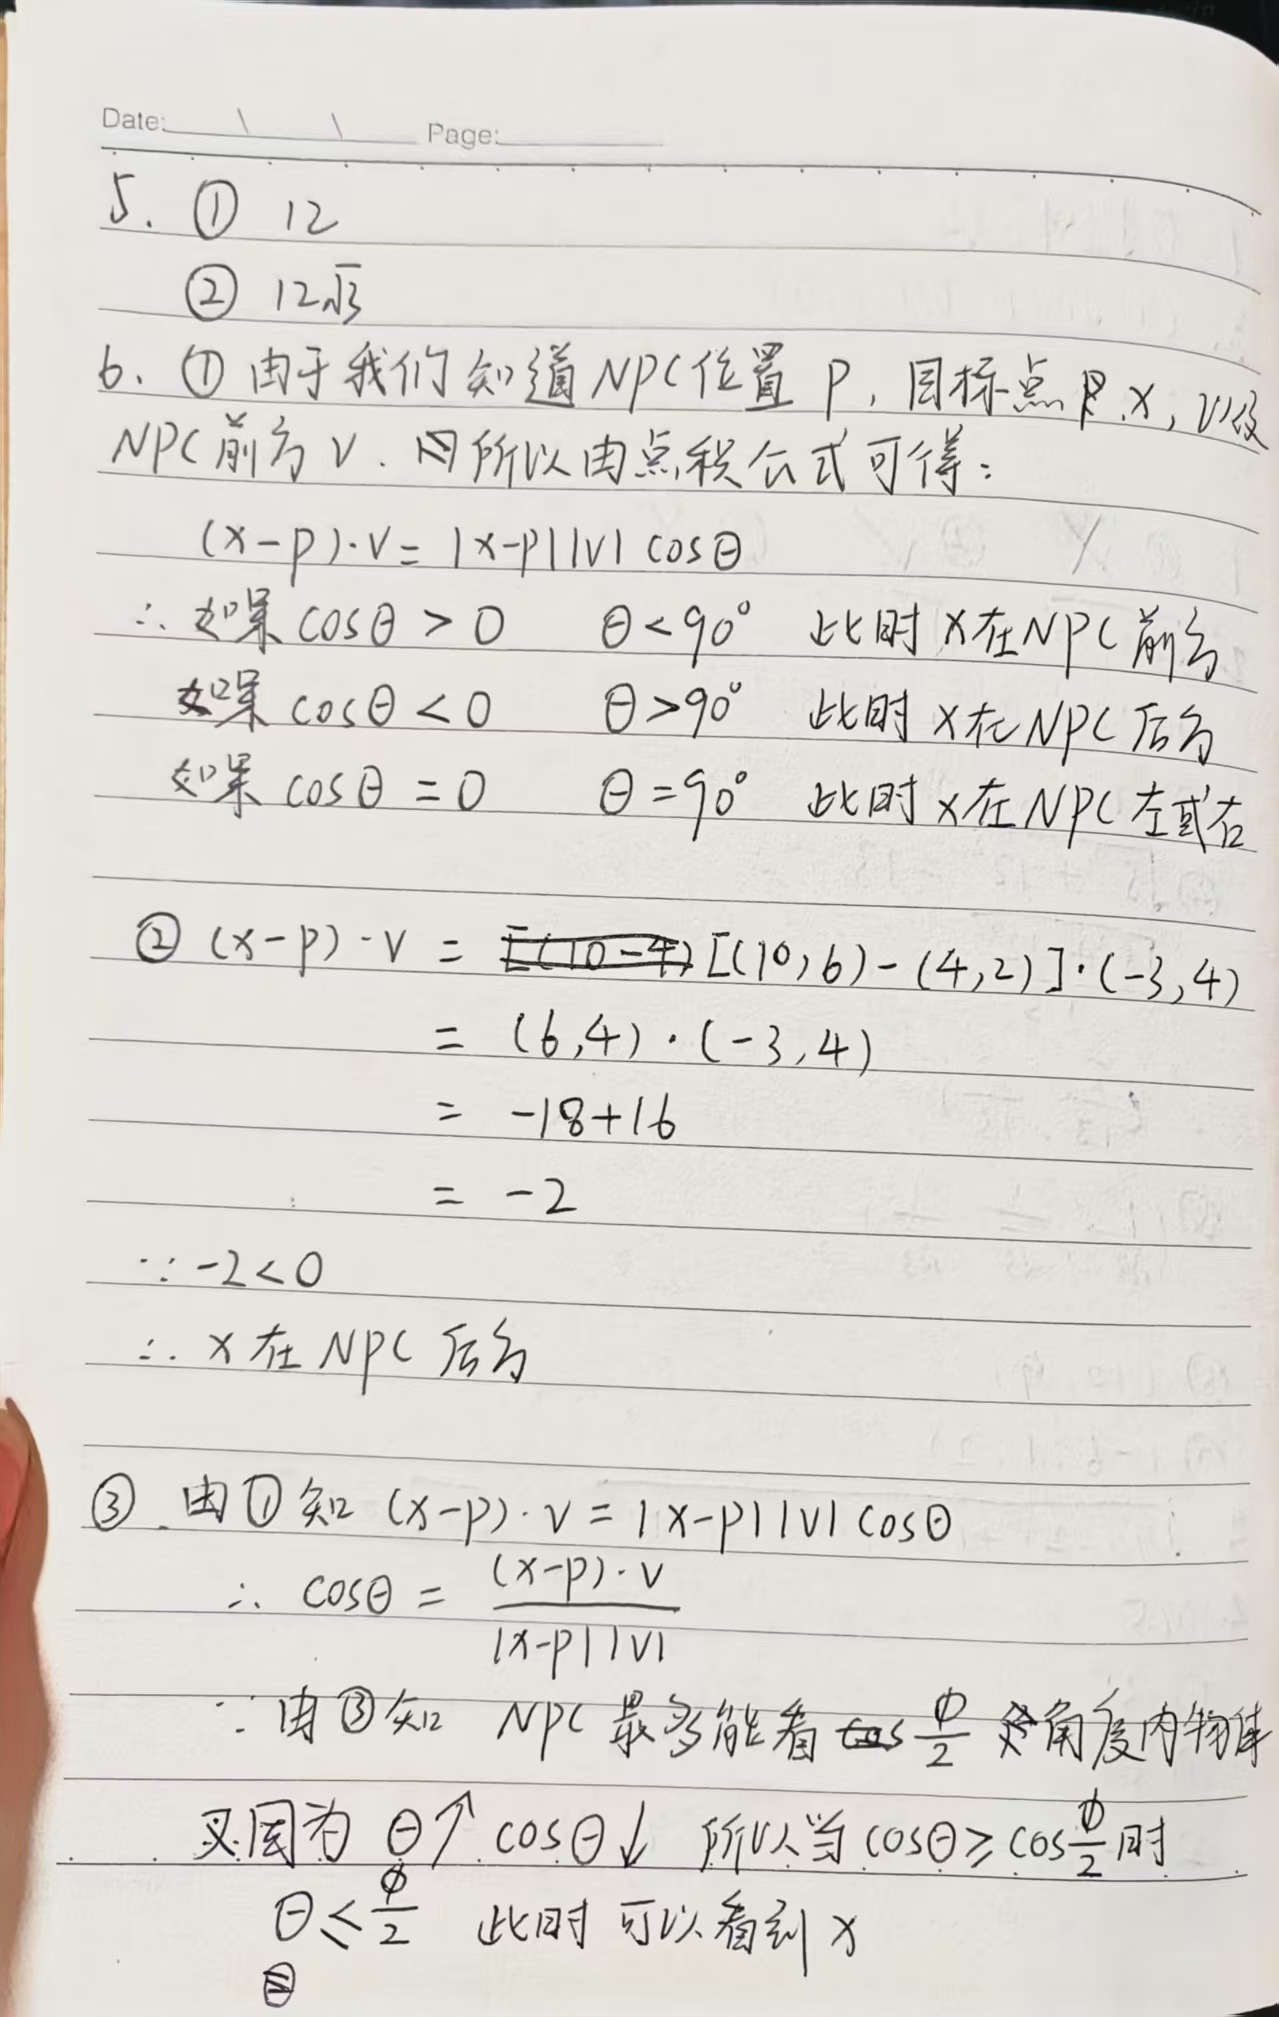 Date: \ \ Page:
5. ① 12
② 12√3
6. ① 由于我们知道NPC位置 P, 目标点 x, 以及
NPC前方 V. 所以由点积公式可得:
(x-p)·v = |x-p||v| cosθ
∴ 如果 cosθ > 0 θ < 90° 此时 x在NPC前方
如果 cosθ < 0 θ > 90° 此时 x在NPC后方
如果 cosθ = 0 θ = 90° 此时 x在NPC左或右
② (x-p)·v = [(10,6)-(4,2)]·(-3,4)
= (6,4)·(-3,4)
= -18+16
= -2
∵ -2<0
∴ x在NPC后方
③ 由①知 (x-p)·v = |x-p||v| cosθ
∴ cosθ = (x-p)·v / |x-p||v|
∵ 由③知 NPC最多能看 φ/2 角度内物体
又因为 θ↑ cosθ↓ 所以当 cosθ ≥ cos φ/2 时
θ ≤ φ/2 此时可以看到 x